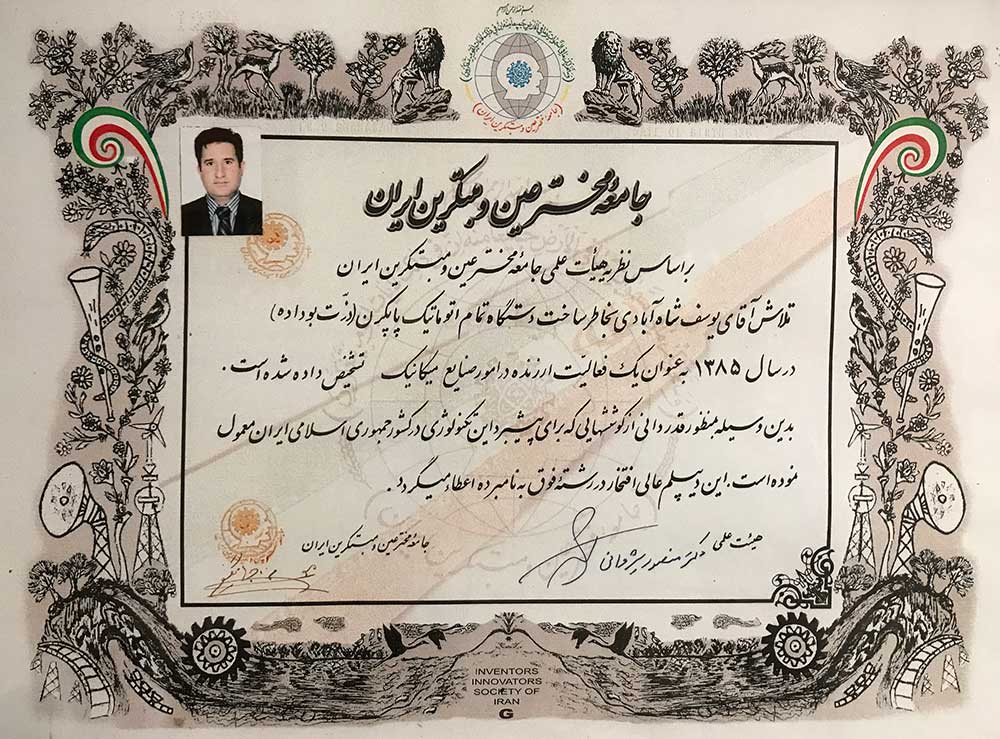 جامعهٔ مخترعین و مبتکرین ایران
جامعهٔ مخترعین و مبتکرین ایران
بر اساس نظریه هیأت علمی جامعهٔ مخترعین و مبتکرین ایران
تلاش آقای یوسف شاه آبادی بخاطر ساخت دستگاه تمام اتوماتیک پاپکرن (ذرّت بوداده)
در سال ۱۳۸۵ به عنوان یک فعالیّت ارزنده در امور صنایع میکانیک تشخیص داده شده است.
بدین وسیله بمنظور قدردانی از کوششهایی که برای پیشبرد این تکنولوژی در کشور جمهوری اسلامی ایران معمول
نموده است. این دیپلم عالی افتخار در رشتهٔ فوق به نامبرده اعطاء میگردد.
هیئت علمی
دکتر منصور
جامعهٔ مخترعین و مبتکرین ایران
INVENTORS
INNOVATORS
SOCIETY OF
IRAN
G